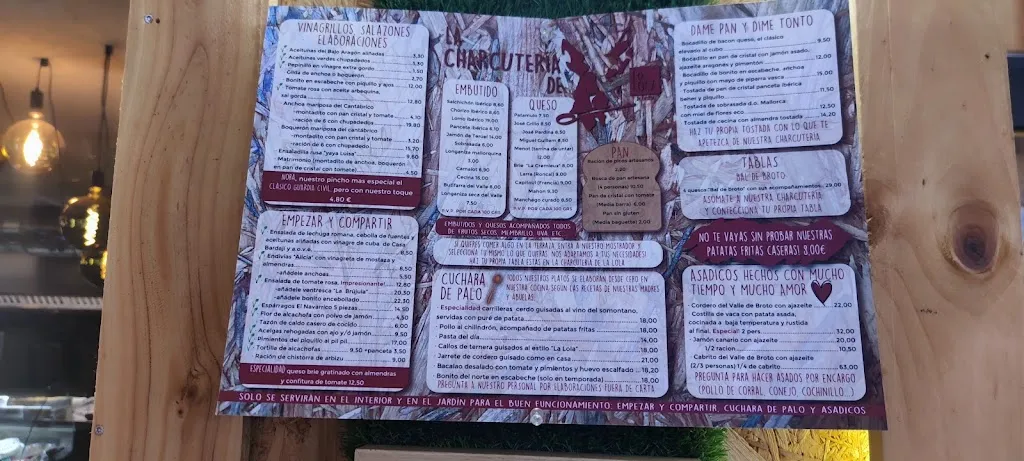 VINAGRILLOS, SALAZONES
ELABORACIONES
Aceitunas del Bajo Aragón aliñadas 3,50
Aceitunas verdes chupadedos 3,50
Pepinillo en vinagre extra gordo 1,50
Gilda de anchoa o boquerón 2,70
Bonito en escabeche con piquillo y ajos 12,00
Tomate rosa con aceite arbequina,
sal gorda 12,80
Anchoa mariposa del Cantábrico
-montadito con pan cristal y tomate 4,10
-ración de 6 con chupadedos 19,80
Boquerón mariposa del cantábrico
-montadito con pan cristal y tomate 3,20
-ración de 6 con chupadedos 15,70
Ensaladilla rusa "yaya Luisa" 9,60
Matrimonio (montadito de anchoa, boquerón
en pan de cristal con tomate 4,50
NOBA, nuestro pincho mas especial el
CLÁSICO GUARDIA CIVIL, pero con nuestro toque
4,80 €
EMPEZAR Y COMPARTIR
Ensalada de lechuga romana, cebolla de fuentes y
aceitunas aliñadas con vinagre de cuba de Casa
Bardaji y a.o.v.e. 6,50
Endivias "Alicia" con vinagreta de mostaza y
almendras 8,50
-añádele anchoas
Ensalada de tomate rosa, impresionante! 12,80
-añádele ventresca "La Brújula" 20,30
-añádele bonito encebollado 22,30
Espárragos El Navarrico 5 piezas 14,50
Flor de alcachofa con polvo de jamón 4,50
Tazón de caldo casero de cocido 6,00
Acelgas rehogadas con ajo y/o jamón 9,50
Pimientos del piquillo al pil pil 17,00
Tortilla de alcachofas 9,50 +panceta 3,50
Ración de chistorra de arbizu 9,00
ESPECIALIDAD queso brie gratinado con almendras
y confitura de tomate 12,50
LA
CHARCUTERÍA
DE
LOLA
EMBUTIDO
Salchichón ibérico 8,60
Chorizo ibérico 8,60
Lomo ibérico 19,00
Panceta ibérica 6,10
Jamón de Teruel 14,00
Sobrasada 6,00
Longaniza mallorquina
3,00
Camaiot 8,90
Cecina 18,00
Butifarra del Valle 8,00
Longaniza seca del Valle
7,50
P.V.P. POR CADA 100 GRS
QUESO
Patamulo 7,50
José Grillo 8,50
José Perdina 8,50
Miguel Guillem 8,50
Menut (tetina de untar)
12,00
Brie "La Cremeux" 8,00
Lerra (Roncal) 9,00
Capitoul (Francia) 9,00
Mahón 9,50
Manchego curado 8,50
P.V.P. POR CADA 100 GRS
PAN
Ración de pan artesano
2,80
Rosca de pan artesano
(4 personas) 10,00
Pan de cristal con tomate
(Media barra) 6,00
Pan sin gluten
(Media baguette) 2,00
EMBUTIDOS Y QUESOS ACOMPAÑADOS TODOS
DE FRUTOS SECOS, MEMBRILLO, UVA, ETC.
SI QUIERES COMER ALGO EN LA TERRAZA, ENTRA A NUESTRO MOSTRADOR Y
SELECCIONA TU MISMO LO QUE QUIERAS, NOS ADAPTAMOS A TUS NECESIDADES!
HAZ TU PROPIA TABLA ESTAS EN LA CHARCUTERIA DE LA LOLA
CUCHARA
DE PALO
TODOS NUESTROS PLATOS SE ELABORAN DESDE CERO EN
NUESTRA COCINA SEGÚN LAS RECETAS DE NUESTRAS MADRES
Y ABUELAS.
- Especialidad carrilleras cerdo guisadas al vino del somontano,
servidas con puré de patata 18,00
- Pollo al chilindrón, acompañado de patatas fritas 18,00
Pasta del día 14,00
Callos de ternera guisados al estilo "La Lola" 18,00
Jarrete de cordero guisado cómo en casa 21,00
Bacalao desalado con tomate y pimientos y huevo escalfado 18,20
Bonito del norte en escabeche (solo en temporada) 18,00
PREGUNTA A NUESTRO PERSONAL POR ELABORACIONES FUERA DE CARTA
DAME PAN Y DIME TONTO
Bocadillo de bacon queso, el clásico
elevado al cubo 9,50
Bocadillo en pan de cristal con jamón asado,
ajazeite aragonés y pimiento 12,00
Bocadillo de bonito en escabeche, anchoa
y piquillo con mayo de piparra vasca 15,00
Tostada de pan de cristal panceta ibérica
bañer y piquillo 11,50
Tostada de sobrasada d.o. Mallorca
con miel de flores eco 12,50
Tostada de cecina con almendra tostada 14,20
HAZ TU PROPIA TOSTADA CON LO QUE TE
APETEZCA DE NUESTRA CHARCUTERIA
TABLAS
BAL DE BROTO
4 quesos "Bal de Broto" con sus acompañamientos 29,00
ASÓMATE A NUESTRA CHARCUTERÍA
Y CONFECCIONA TU PROPIA TABLA
NO TE VAYAS SIN PROBAR NUESTRAS
PATATAS FRITAS CASERAS! 8,00€
ASADICOS HECHOS CON MUCHO
TIEMPO Y MUCHO AMOR
- Cordero del Valle de Broto con ajazeite 22,00
Costilla de vaca con patata asada,
cocinada a baja temperatura y rustida
al final, Especial! 2 pers. 32,00
- Jamón canario con ajazeite 20,00
1/2 racion 10,50
Cabrito del Valle de Broto con ajazeite
(2/3 personas) 1/4 de cabrito 63,00
PREGUNTA PARA HACER ASADOS POR ENCARGO
(POLLO DE CORRAL, CONEJO, COCHINILLO...)
SOLO SE SERVIRÁN EN EL INTERIOR Y EN EL JARDÍN PARA EL BUEN FUNCIONAMIENTO: EMPEZAR Y COMPARTIR, CUCHARA DE PALO Y ASADICOS